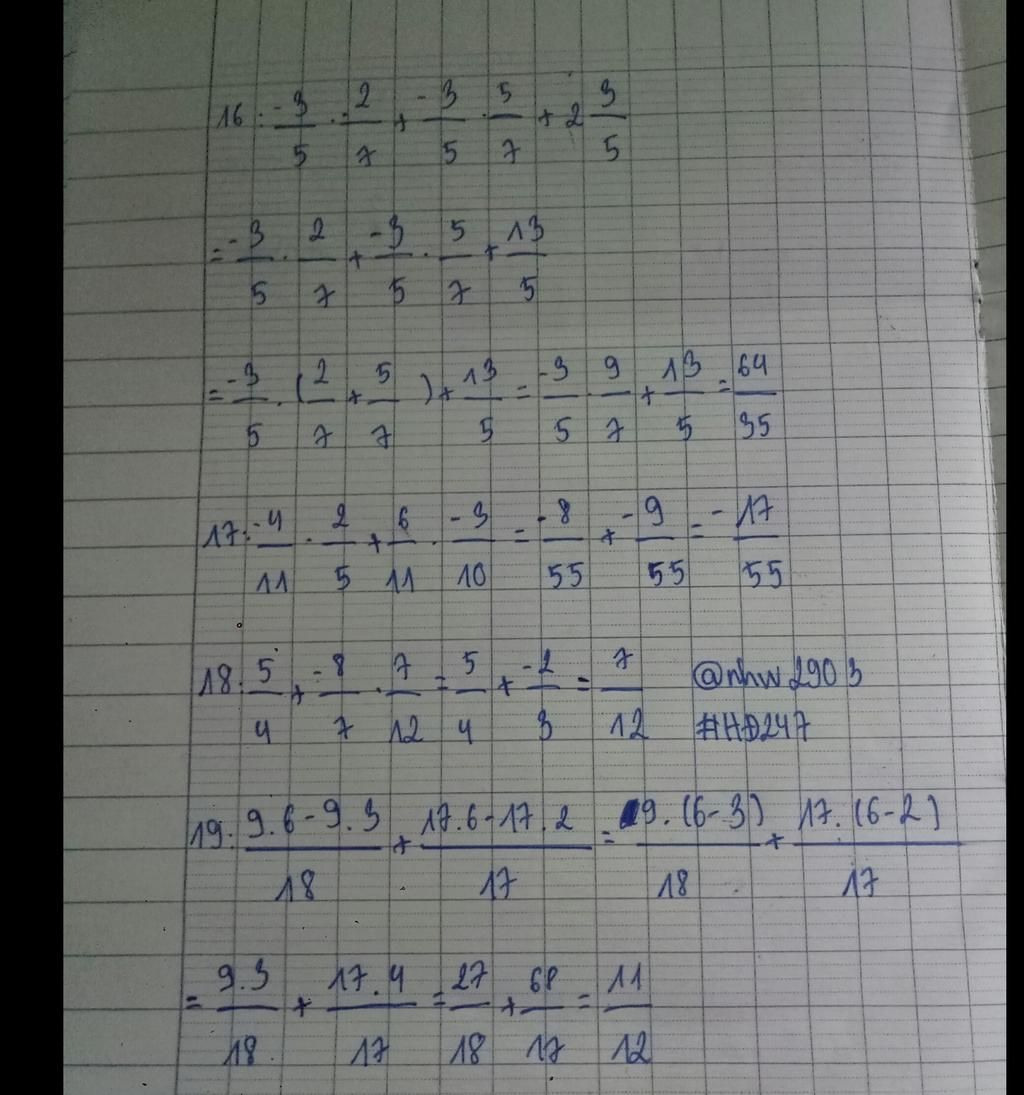 16: -3/5 . 2/7 + -3/5 . 5/7 + 2 3/5
= -3/5 . 2/7 + -3/5 . 5/7 + 13/5
= -3/5 . (2/7 + 5/7) + 13/5 = -3/5 . 9/7 + 13/5 = 64/35
17: -4/11 . 2/5 + 6/11 . -3/10 = -8/55 + -9/55 = -17/55
18: 5/4 + -8/7 . 7/12 = 5/4 + -2/3 = 7/12 @nhw2903
#HD247
19: 9.6-9.3/18 + 17.6-17.2/17 = 9.(6-3)/18 + 17.(6-2)/17
= 9.3/18 + 17.4/17 = 27/18 + 68/17 = 11/12